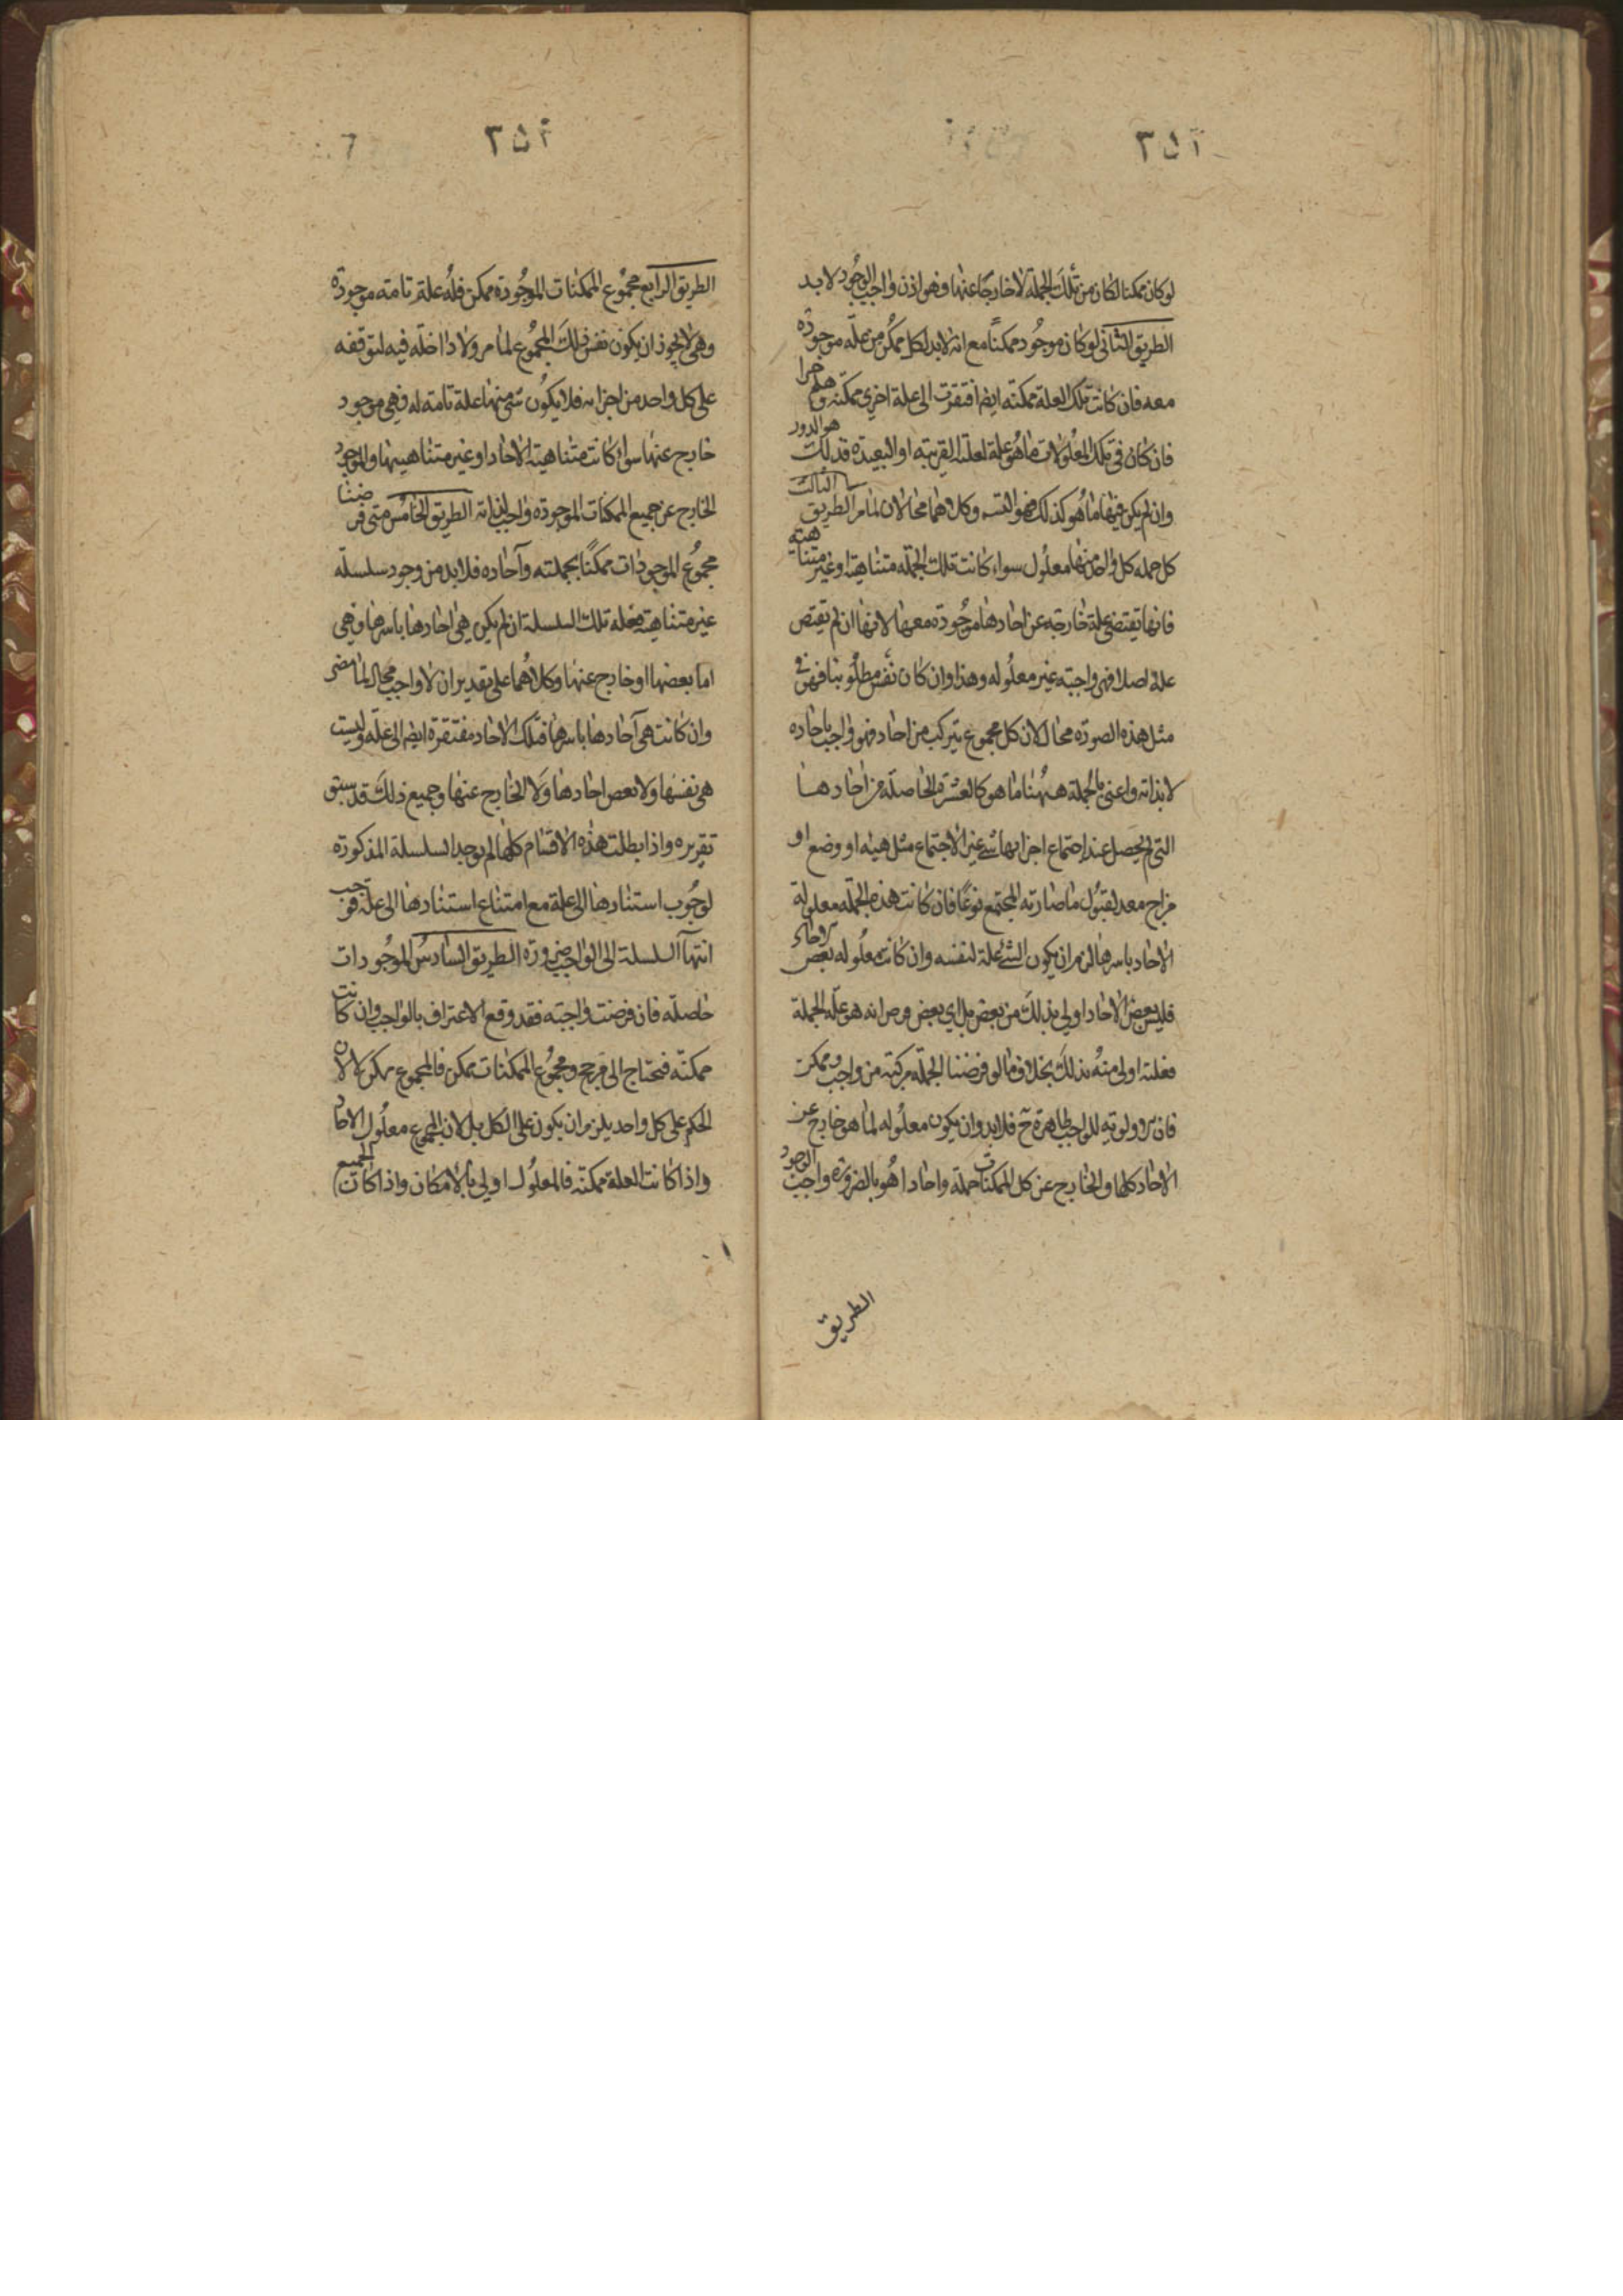 ٢٥٢
لو كان ممكنا لكان من تلك الجملة لا خارجا عنها وهو اذن واجب الوجود لابد
الطريق الثاني لو كان موجود ممكنا مع انه لابد لكل ممكن من علة موجودة
معه فان كانت تلك العلة ممكنه ايضا افتقرت الى علة اخرى ممكنه وهلم جرا
فان كان في تلك المعلولات ما هو علة لعلته القريبه او البعيدة فذلك هو الدور
وان لم يكن فيها ما هو كذلك فهو التسـ وكلاهما محالان لما مر الطريق الثالث
كل جمله كل واحد منها معلول سواء كانت تلك الجمله متناهية او غير متناهيه
فانها تقتضي علة خارجه عن احادها موجودة معها لانها ان لم تقتض
علة اصلا فهي واجبة غير معلوله وهذا وان كان نفس مطلوبنا فهو في
مثل هذه الصورة محال لان كل مجموع يتركب من احاد فهو واجب باحاده
لا بذاته واعني بالجملة ههنا ما هو كالعشرة الحاصلة من احادها
التي لم يحصل عند اجتماع اجزائها شي غير الاجتماع مثل هيئه او وضع او
مزاج معد لقبول ما صار به المجتمع نوعا فان كانت هذه الجمله معلولة
الاحاد باسرها لزم ان يكون الشئ علة لنفسه وان كانت معلوله بعض الاحاد
فليس بعض الاحاد اولى بذلك من بعض بل اي بعض فرض انه هو علة الجملة
فعلته اولى منه بذلك بخلاف ما لو فرضنا الجملة مركبة من واجب وممكن
فان اولويه للواجب ظاهرة ح فلابد وان يكون معلوله لما هو خارج عن
الاحاد كلها والخارج عن كل الممكنات جملة واحادا هو بالضرورة واجب الوجود
الطريق
٢٥٣
الطريق الرابع مجموع الممكنات الموجودة ممكن فله علة تامة موجودة
وهي لا يجوز ان يكون نفس ذلك المجموع لما مر ولا داخله فيه لتوقفه
على كل واحد من اجزائه فلا يكون شئ منها علة تامة له فهي موجود
خارج عنها سواء كانت متناهية الاحاد او غير متناهيها والموجود
الخارج عن جميع الممكنات الموجودة واجب لذاته الطريق الخامس متى فرضنا
مجموع الموجودات ممكنا بجملته وآحاده فلابد من وجود سلسلة
غير متناهية فعلة تلك السلسلة ان لم يكن هي احادها باسرها فهي
اما بعضها او خارج عنها وكلاهما على تقدير ان لا واجب محال لما مضى
وان كانت هي آحادها باسرها فتلك الاحاد مفتقرة ايضا الى علة وليست
هي نفسها ولا بعض احادها ولا الخارج عنها وجميع ذلك قد سبق
تقريره واذا بطلت هذه الاقسام كلها لم يوجد السلسلة المذكورة
لوجوب استنادها الى علة مع امتناع استنادها الى علة فوجب
انتهاء السلسلة الى الواجب ضرورة الطريق السادس الموجودات
حاصلة فان فرضت واجبة فقد وقع الاعتراف بالواجب وان كانت
ممكنة فتحتاج الى مرجح ومجموع الممكنات ممكن فالمجموع ممكن لا لان
الحكم على كل واحد يلزم ان يكون على الكل بل لان المجموع معلول الاحاد
واذا كانت العلة ممكنة فالمعلول اولى بالامكان واذا كان الجميع